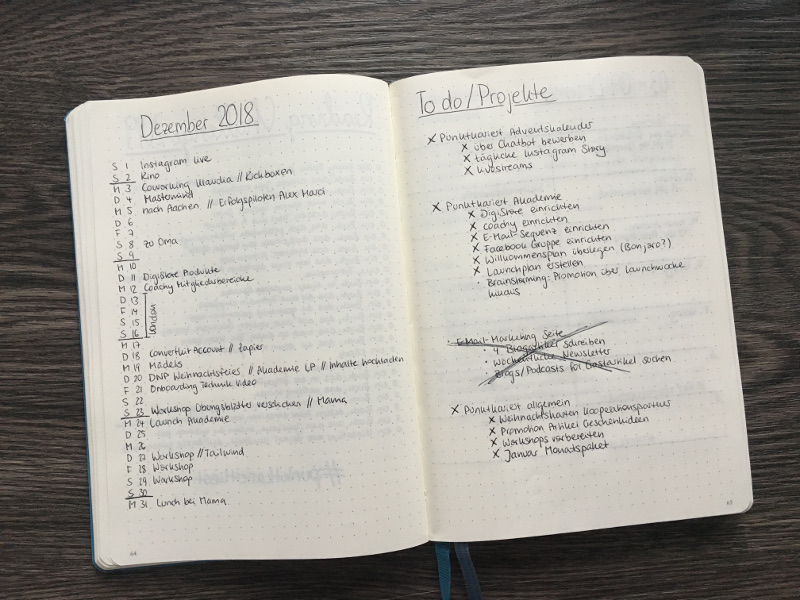 Dezember 2018
S 1 Instagram Live
S 2 Kino
M 3 Coworking Klaudia // Kickboxen
D 4 Mastermind
M 5 nach Aachen // Erfolgspiloten Alex Marci
D 6
F 7
S 8 zu Oma
S 9
M 10
D 11 DigiStore Produkte
M 12 Coachy Mitgliedsbereiche
D 13
F 14
S 15
S 16
London
M 17
D 18 ConvertKit Account // Zapier
M 19 Mädels
D 20 DNP Weihnachtsfeier // Akademie LP // Inhalte hochladen
F 21 Onboarding Technik Video
S 22
S 23 Workshop Übungsblätter verschicken // Mama
M 24 Launch Akademie
D 25
M 26
D 27 Workshop // Tailwind
F 28 Workshop
S 29 Workshop
S 30
M 31 Lunch bei Mama
44
To do / Projekte
x Punktkariert Adventskalender
x über Chatbot bewerben
x tägliche Instagram Story
x Livestreams
x Punktkariert Akademie
x DigiStore einrichten
x coachy einrichten
x E-Mail-Sequenz einrichten
x Facebook Gruppe einrichten
x Willkommensplan überlegen (Bonjoro?)
x Launchplan erstellen
· Brainstorming: Promotion über Launchwoche
hinaus
· E-Mail-Marketing Seite
· 4 Blogartikel schreiben
· wöchentliche Newsletter
· Blogs/Podcasts für Gastartikel suchen
x Punktkariert allgemein
x Weihnachtskarten Kooperationspartner
x Promotion Artikel Geschenkideen
x Workshops vorbereiten
x Januar Monatspaket